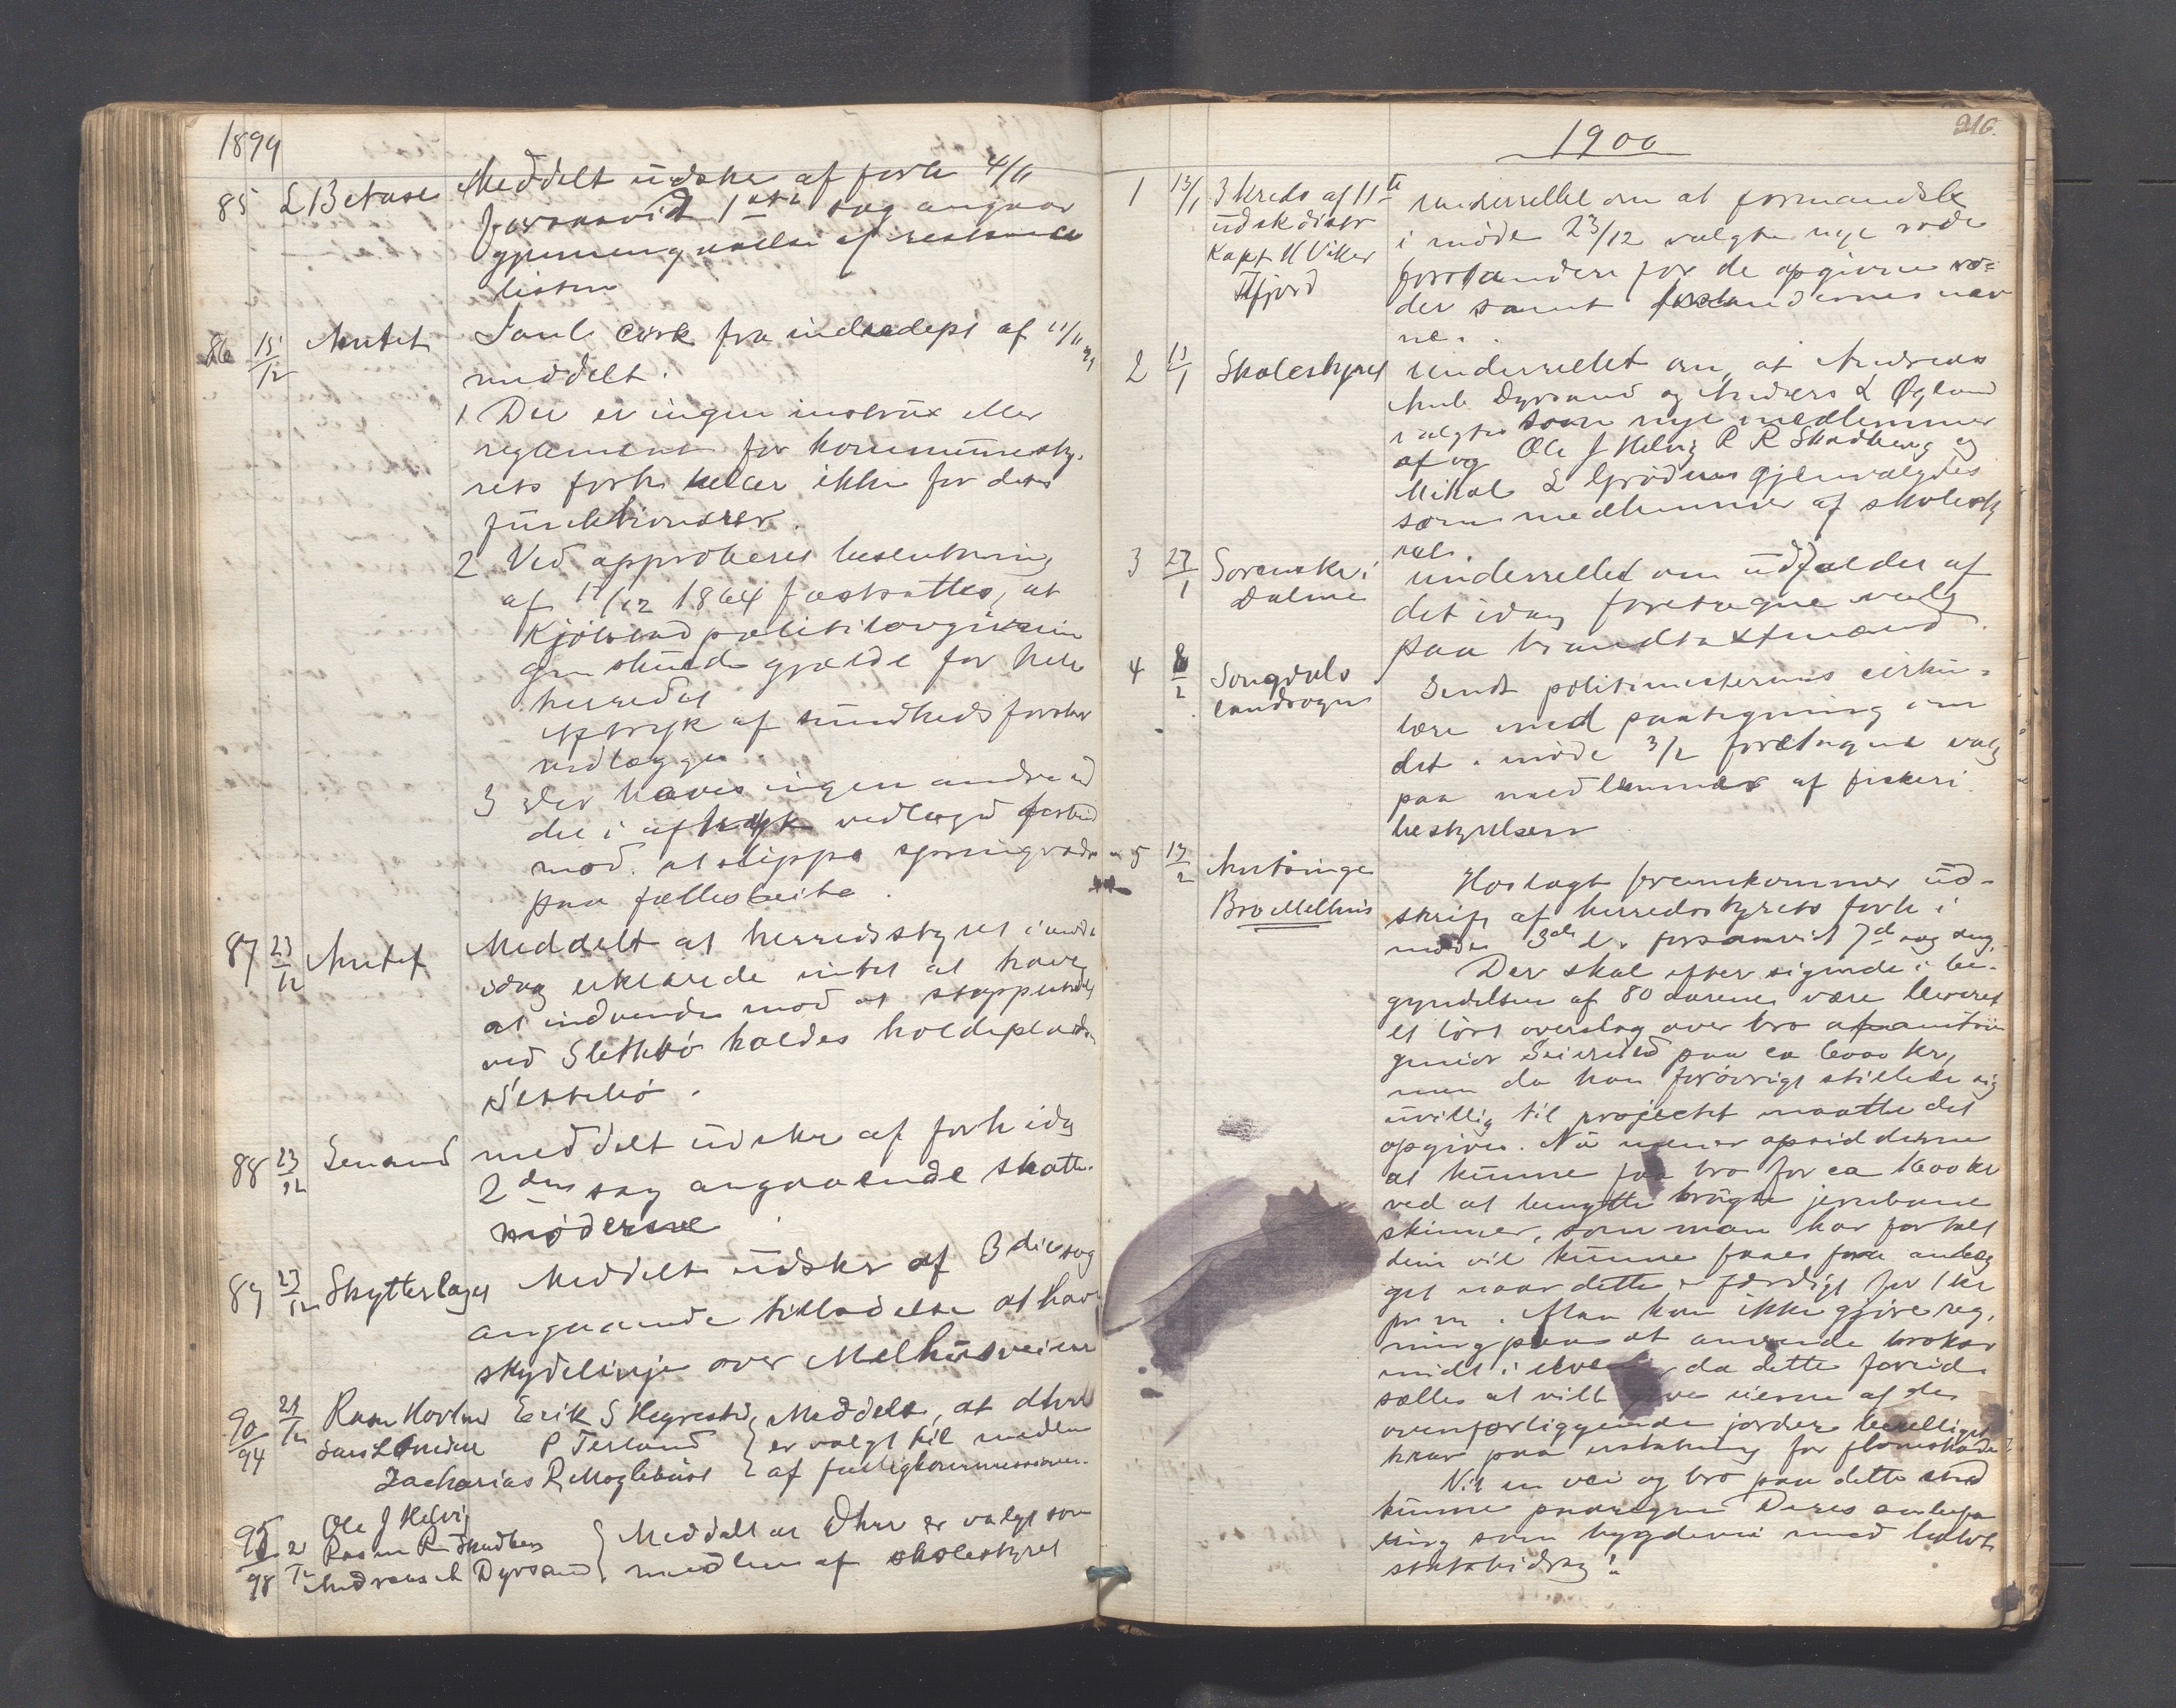 1899
85 L Betuse Meddelt üdskr af forh 4/11
forsaavidt 1ste sag angaar
gjennemgaaelse af restance
listen
86 15/12 Amtet Samle cirk fra indredept af 11/11 99
meddelt.
1 Der er ingen instrüx eller
reglement for kommünesty-
rets forh heller ikke for dets
fünktionærer.
2 Ved approberet beslutning
af 17/12 1864 fastsattes, at
Kjøbstad politilovgivnin
gen skülde gjælde for hele
herredet
Aftryk af sündhedsforskr
vedlægges
3 Der haves ingen andre end
det i aftryk vedlagd forbud
mod at slippe
paa fællesbeite.
87 23/12 Amtet Meddelt at herredsstyret i møde
idag erklærede intet at have
at indvende mod at stoppested
ved Slettebø kaldes holdeplads
Slettebø.
88 23/12 meddelt üdskr af forh idg
2den sag angaaende skatte-
møderne
89 23/12 Skytterlaget Meddelt üdskr af 3die sag
angaaende tilladelse at have
skydelinje over Melhüsveien
90/94 29/12 Rasm Hovland Erik S Hegrestad Meddelt, at dhrr
Lars L P Terland er valgt til medlem
Zacharias R Maglebüst af fattigkommissionen.
95/98 2/12 Ole J Helvig
Rasm R Skadberg Meddelt at Dhrr er valgt som
Andreas A Dyrsand medlem af skolestyret
1900
216.
1 13/1 3 kreds af 11te underrettet om at formandsk
üdsk distr i møde 23/12 valgte nye rode
Kapt forstandere for de opgivne ro-
der samt forstandernes nav
ne.
2 13/1 Skolestyret underrettet om, at Andreas
Dyrsand og Anders L Øgland
valgtes som nye medlemmer
af og Ole J Helvig R R Skadberg og
Mikal L Grødem gjenvalgtes
som medlemmer af skolesty
ret.
3 27/1 Sorenskr i underrettet om üdfaldet af
Dalene det idag foretagne valg
paa brandtaxtmænd.
4 8/2 Sogndals Sendt politimesterens cirkü-
landsogn lære med paategning om
det i møde 3/2 foretagne valg
paa medlemmer af fiskeri
bestyrelsen
5 13/2 Amtsinge Hoslagt fremkommer üd-
Bro Melhus skrift af herredsstyrets forh i
møde 3de d. forsaavidt 7d sag ang.
Der skal efter sigende i be-
gyndelsen af 80 aarene være leveret
et løst overslag over bro af amtsin
geniør paa ca 6000 kr,
men da han forøvrigt stillede sig
üvillig til projectet maatte det
opgives. Nü mener opsidderne
at künne faa bro for ca 1600 kr
ved at benytte brügte jernbane
skinner, som man har fortalt
dem vil künne faaes fra anlæg
get naar dette er færdigt for 1 kr
pr m. Man kan ikke gjøre reg-
ning paa at anvende brokar
midt i elven da dette forüd-
sættes at ville give eierne af de
ovenforliggende jorder
krav paa erstatning for flomskade.
Vil en vei og bro paa dette sted
künne paaregne Deres anbefa
ling som bygdevei med halvt
statsbidrag?